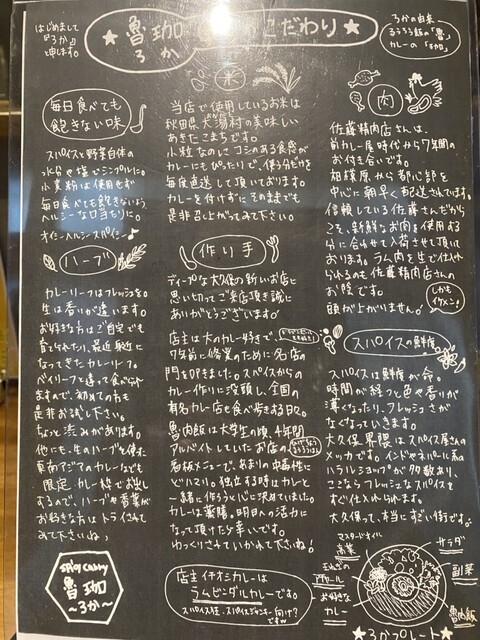 はじめまして
『ろか』
と申します。
★魯珈 こだわり★
ろか
ろかの由来
るうろう飯の「魯」
カレーの「珈」
毎日食べても
飽きない味
スパイスと野菜自体の
水分や塩でシンプルに。
小麦粉は使用せず
毎日食べても飽きないよう
ヘルシーな口当たりに。
オイシーヘルシースパイシー♪
ハーブ
カレーリーフはフレッシュを。
生は香りが違います。
お好きな方はご自宅でも
育てられたり、最近身近に
なってきたカレーリーフ。
ベイリーフと違って食べられ
ますので、初めての方も
是非お試し下さい。
ちょっと渋みがあります。
他にも、生のハーブを使った
東南アジアのカレーなども
限定カレー枠でお出し
するので、ハーブや香菜が
お好きな方はトライされて
みて下さいね♪
SPicy Curry
魯珈
～ろか～
米
当店で使用しているお米は
秋田県大潟村の美味しい
あきたこまちです。
小粒なのにコシのある食感が
カレーにもぴったりで、使う分だけを
毎度直送して頂いております。
カレーを付けずにそのままでも
是非召し上がってみて下さい。
作り手
ディープな大久保の新しいお店に
思い切ってご来店頂き誠に
ありがとうございます!
店主は大のカレー好きで、
7年前に修業のために名店の
門を叩きました。スパイスからの
カレー作りに没頭し、全国の
有名カレー店を食べ歩きする日々。
魯肉飯は大学生の頃、4年間
アルバイトしていたお店の
看板メニューで、あまりの中毒性に
どハマり。独立する時はカレーと
一緒に作ろうと心に決めていました。
カレーは薬膳。明日への活力に
なって頂けたら幸いです。
ゆっくりさせていかれて下さいね!
店主イチオシカレーは
ラムビンダルカレーです。
スパイス狂、スパイスジャンキー向け?
ですw
肉
佐藤精肉店さんは、
前カレー屋時代から7年間の
お付き合いです。
相模原から都心部を
中心に朝早く配送されています。
信頼している佐藤さんだから
こそ、新鮮なお肉を使用する
分に合わせて入荷させて頂いて
おります。ラム肉を生で仕入れ
られるのも佐藤精肉店さんの
お陰です。
頭が上がりません!
しかも
イケメン!
スパイスの鮮度
スパイスは鮮度が命。
時間が経つと色や香りが
薄くなったり、フレッシュさが
なくなっていきます。
大久保界隈はスパイス屋さんの
メッカです。インドやネパール系の
ハラルショップが多数あり、
ここならフレッシュなスパイスを
すぐ仕入れられます。
大久保って、本当にすごい街です。
マスタードオイル
高菜
サラダ
アチャール
副菜
お好きな
カレー
魯肉飯
★ろかプレート★